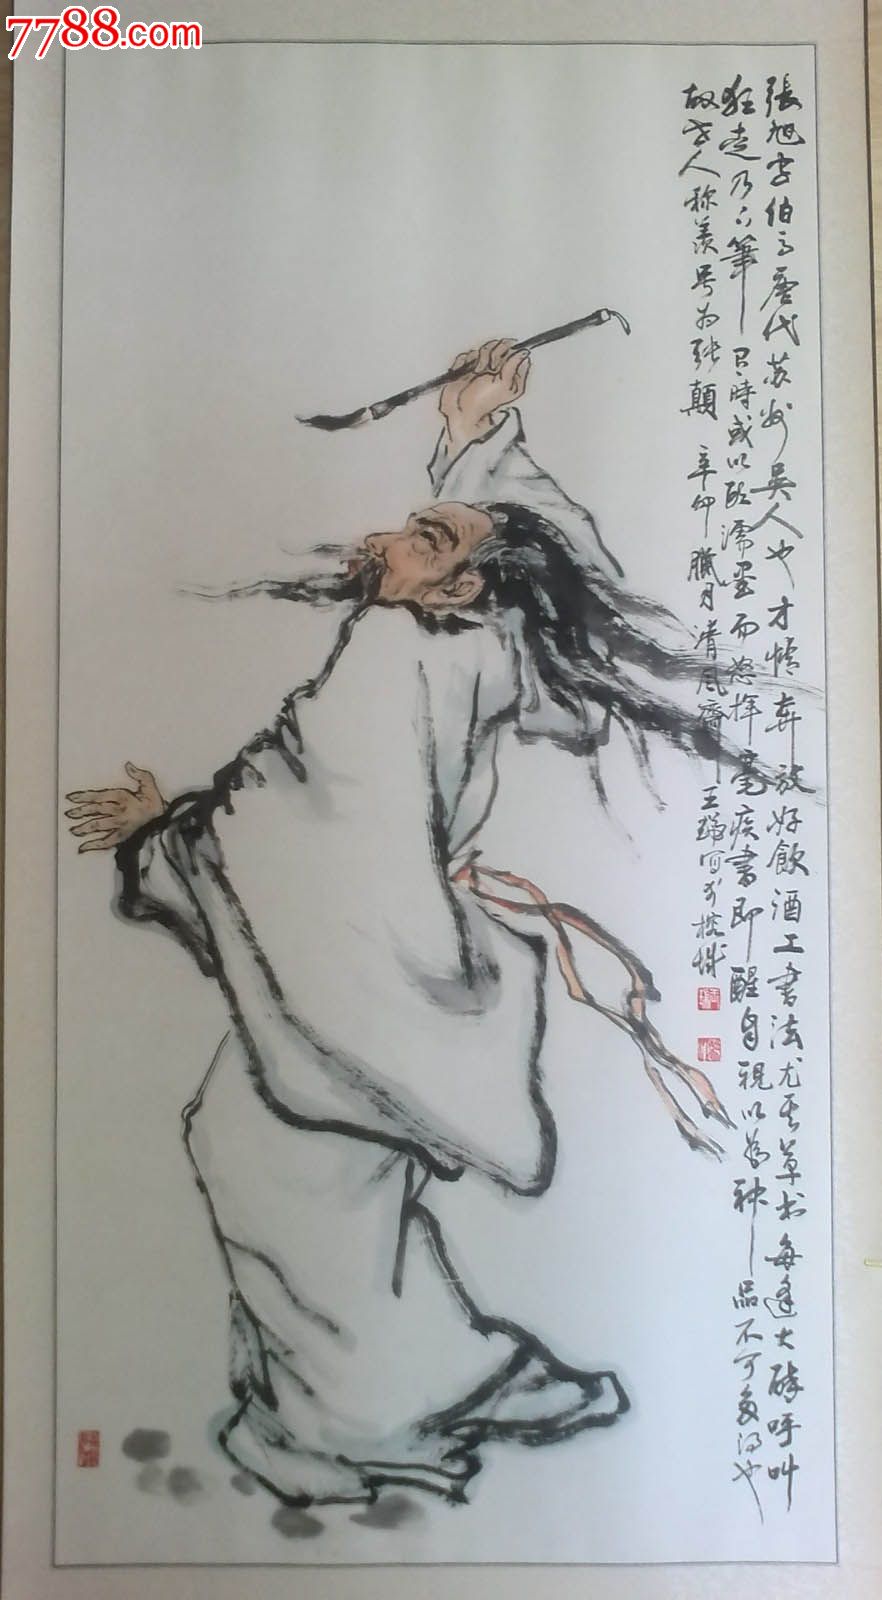 7788.com
張旭字伯高唐代苏州吳人也才情奔放好飲酒工書法尤其草书每逢大醉呼叫
狂走乃下筆只時或以頭濡墨而怒揮毫疾書即醒自視以為神品不可多得也
故世人称羡号为张顛 辛卯臘月清风齋王瑞写於榕城